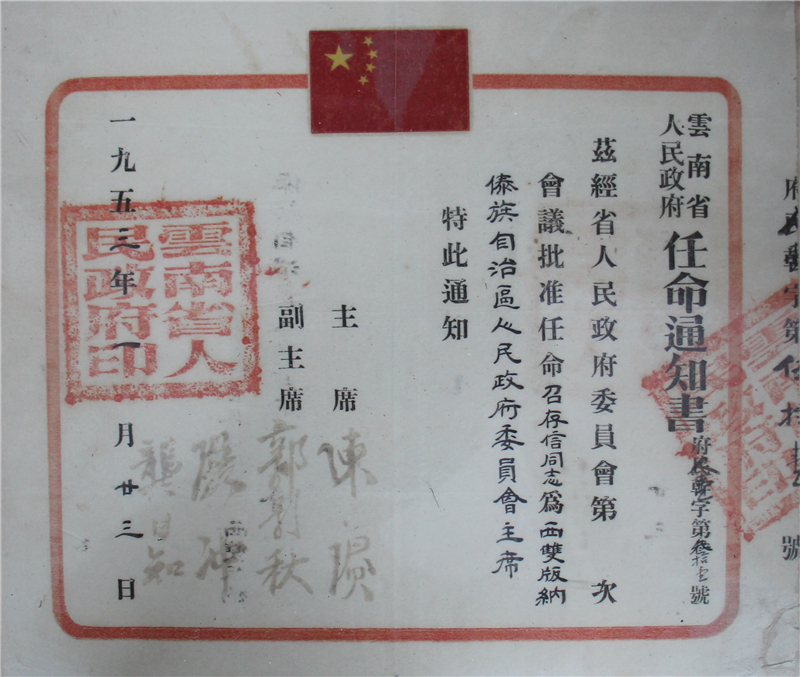 雲南省
人民政府
任命通知書
府民覲字第叁拾壹號
茲經省人民政府委員會第 次
會議批准任命召存信同志為西雙版納
傣族自治區人民政府委員會主席
特此通知
主席 陳賡
副主席 郭影秋
楊沖
龔自知
一九五三年一月廿三日
雲南省人
民政府印
府民 字第 號